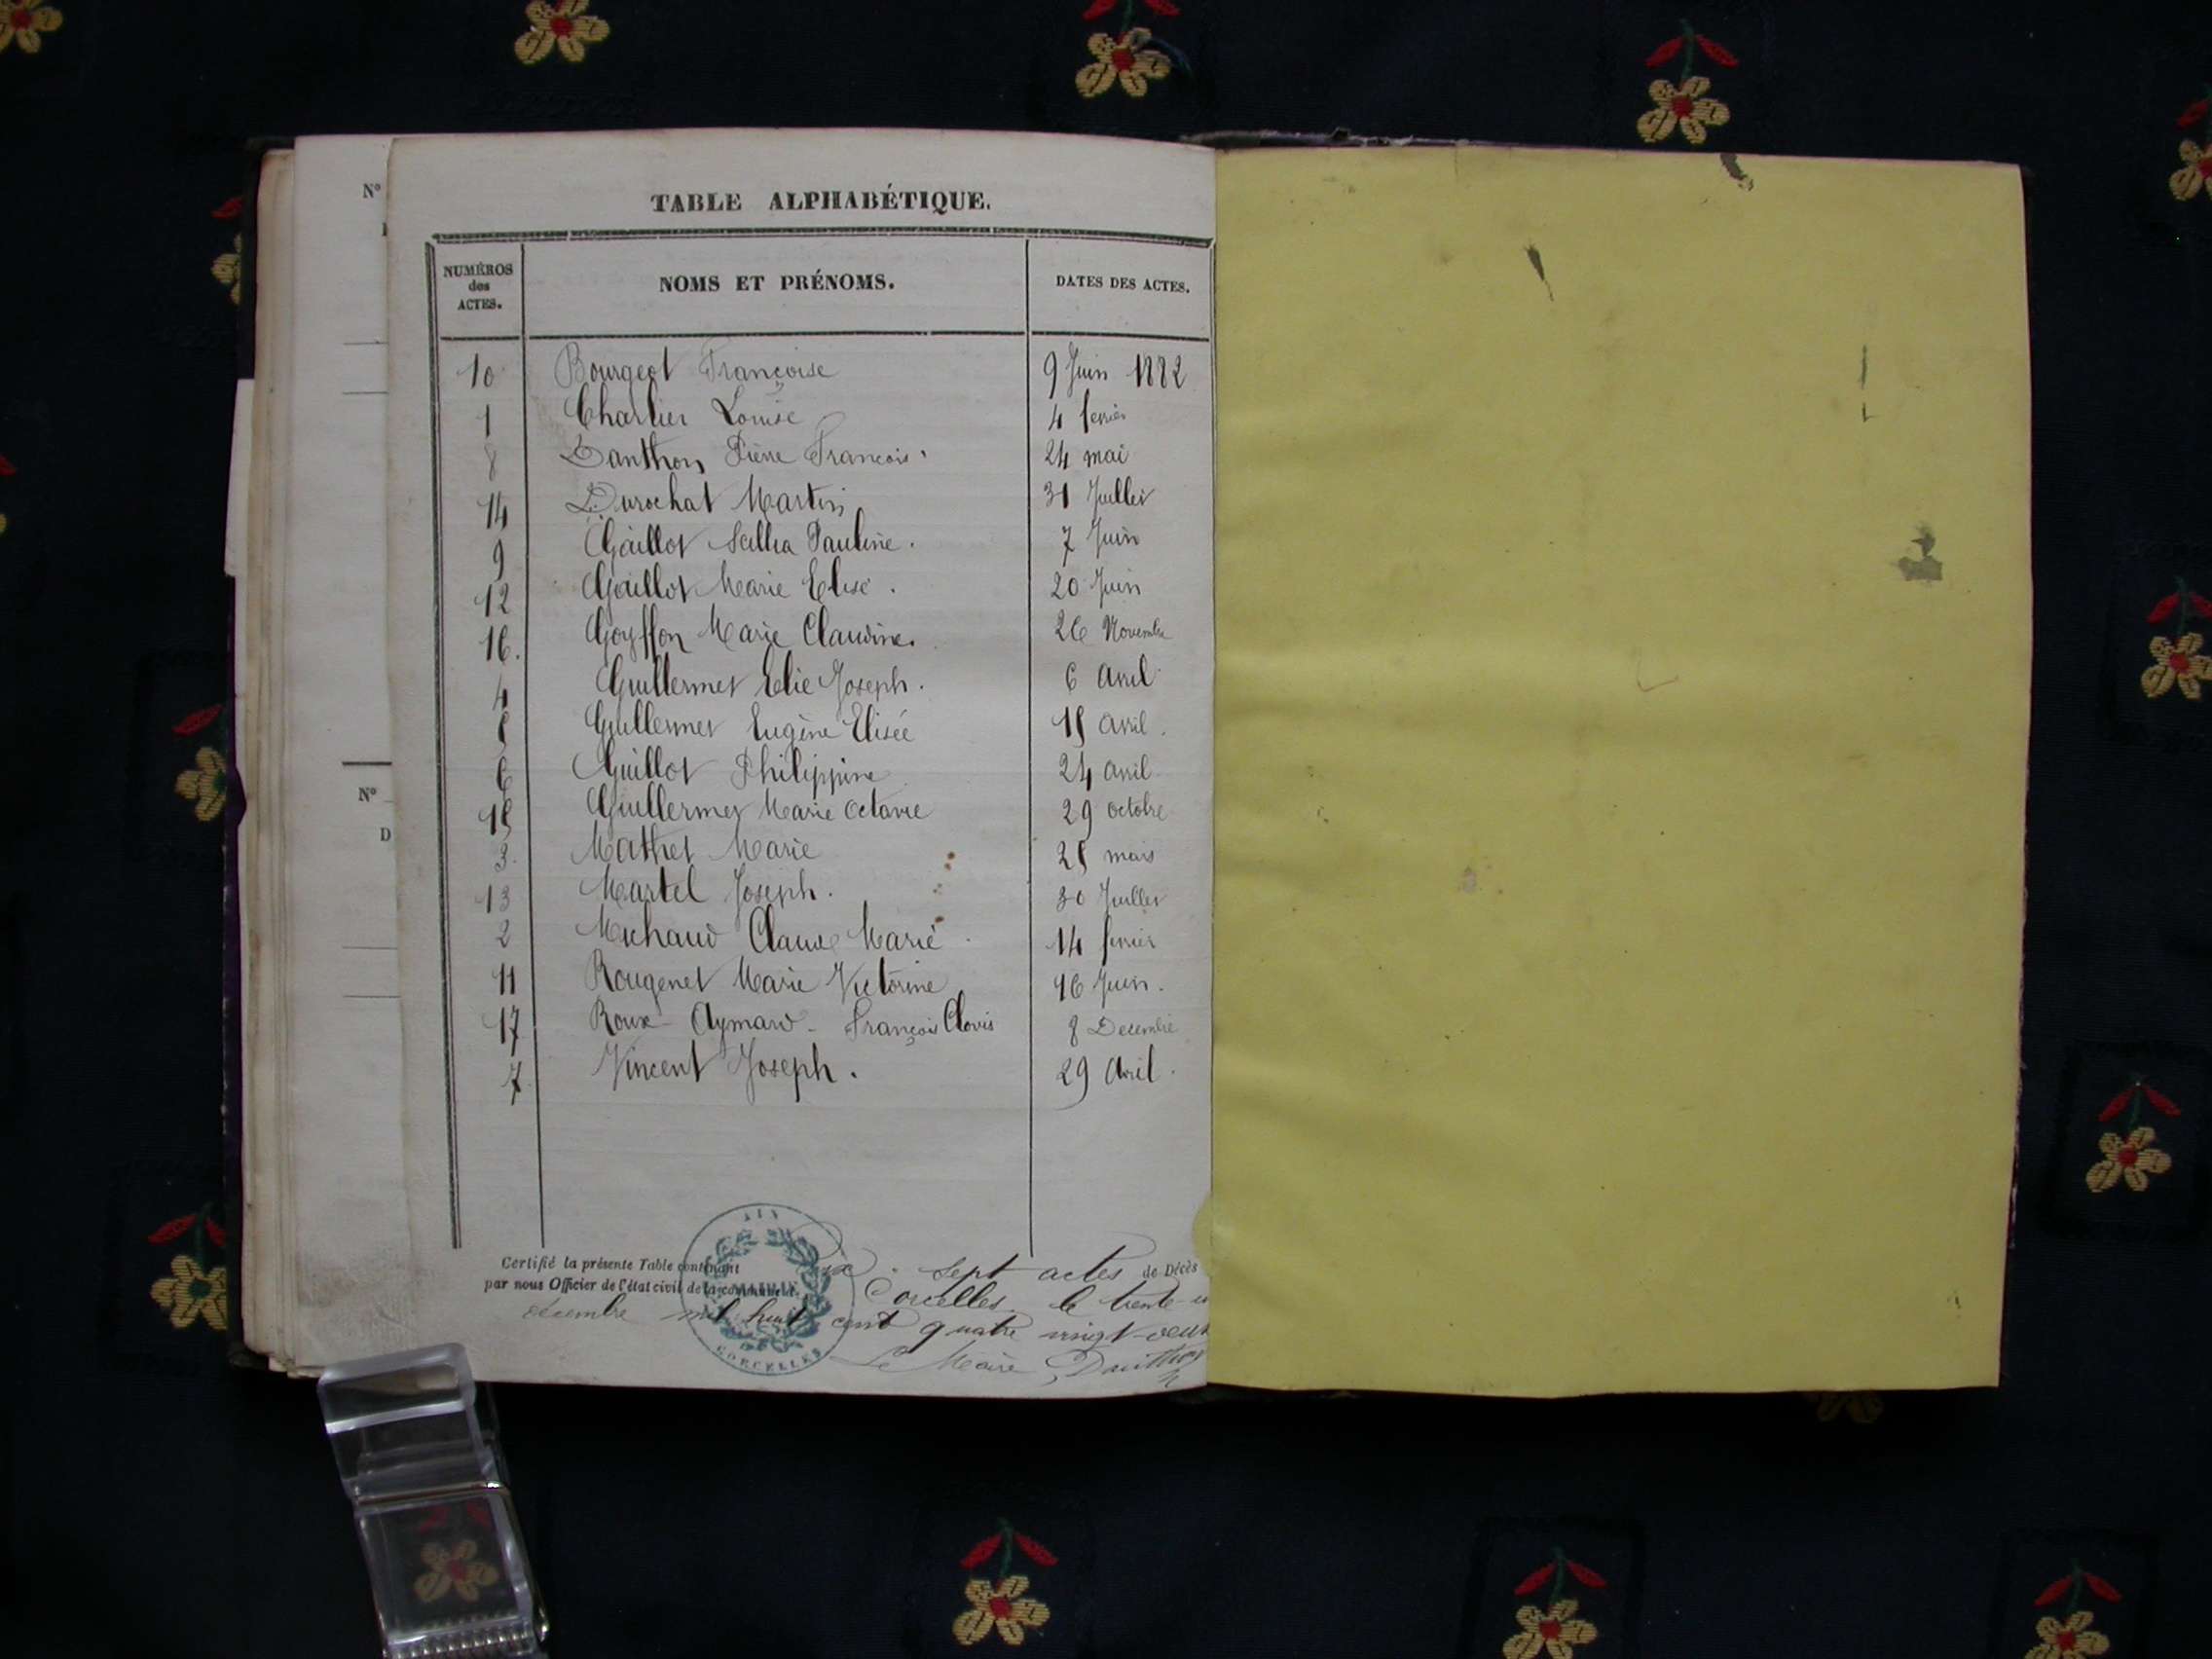 N°
TABLE ALPHABÉTIQUE.
NUMÉROS
des
ACTES.
NOMS ET PRÉNOMS.
DATES DES ACTES.
10 Bourgeot Françoise 9 Juin 1882
1 Charlier Louise 4 fevrier
8 Danthon Pierre Francois 24 mai
14 Durochat Martin 31 Juillet
9 Gaillot Pauline. 7 Juin
12 Gaillot Marie Elise. 20 Juin
16. Goyffon Marie Claudine. 26 Novembre
4 Guillermet Elie Joseph. 6 Avril
5 Guillermet Eugène Elisée 15 avril.
6 Guillot Philippine 24 avril
15 Guillermet Marie Octavie 29 octobre
3. Mathet Marie 25 mars
13 Martel Joseph. 30 Juillet
2 Michaud Claude Marie 14 fevrier
11 Rougenet Marie Victorine 16 Juin.
17 Roux-Aymard-François Clovis 8 Decembre
7. Vincent Joseph. 29 Avril.
N°
D
AIN
MAIRIE
CORCELLES
Certifié la présente Table contenant Dix-sept actes de Décès
par nous Officier de l'état civil de la commune de Corcelles le trente-u
décembre mil huit cent quatre vingt-deux
Le Maire, Danthon